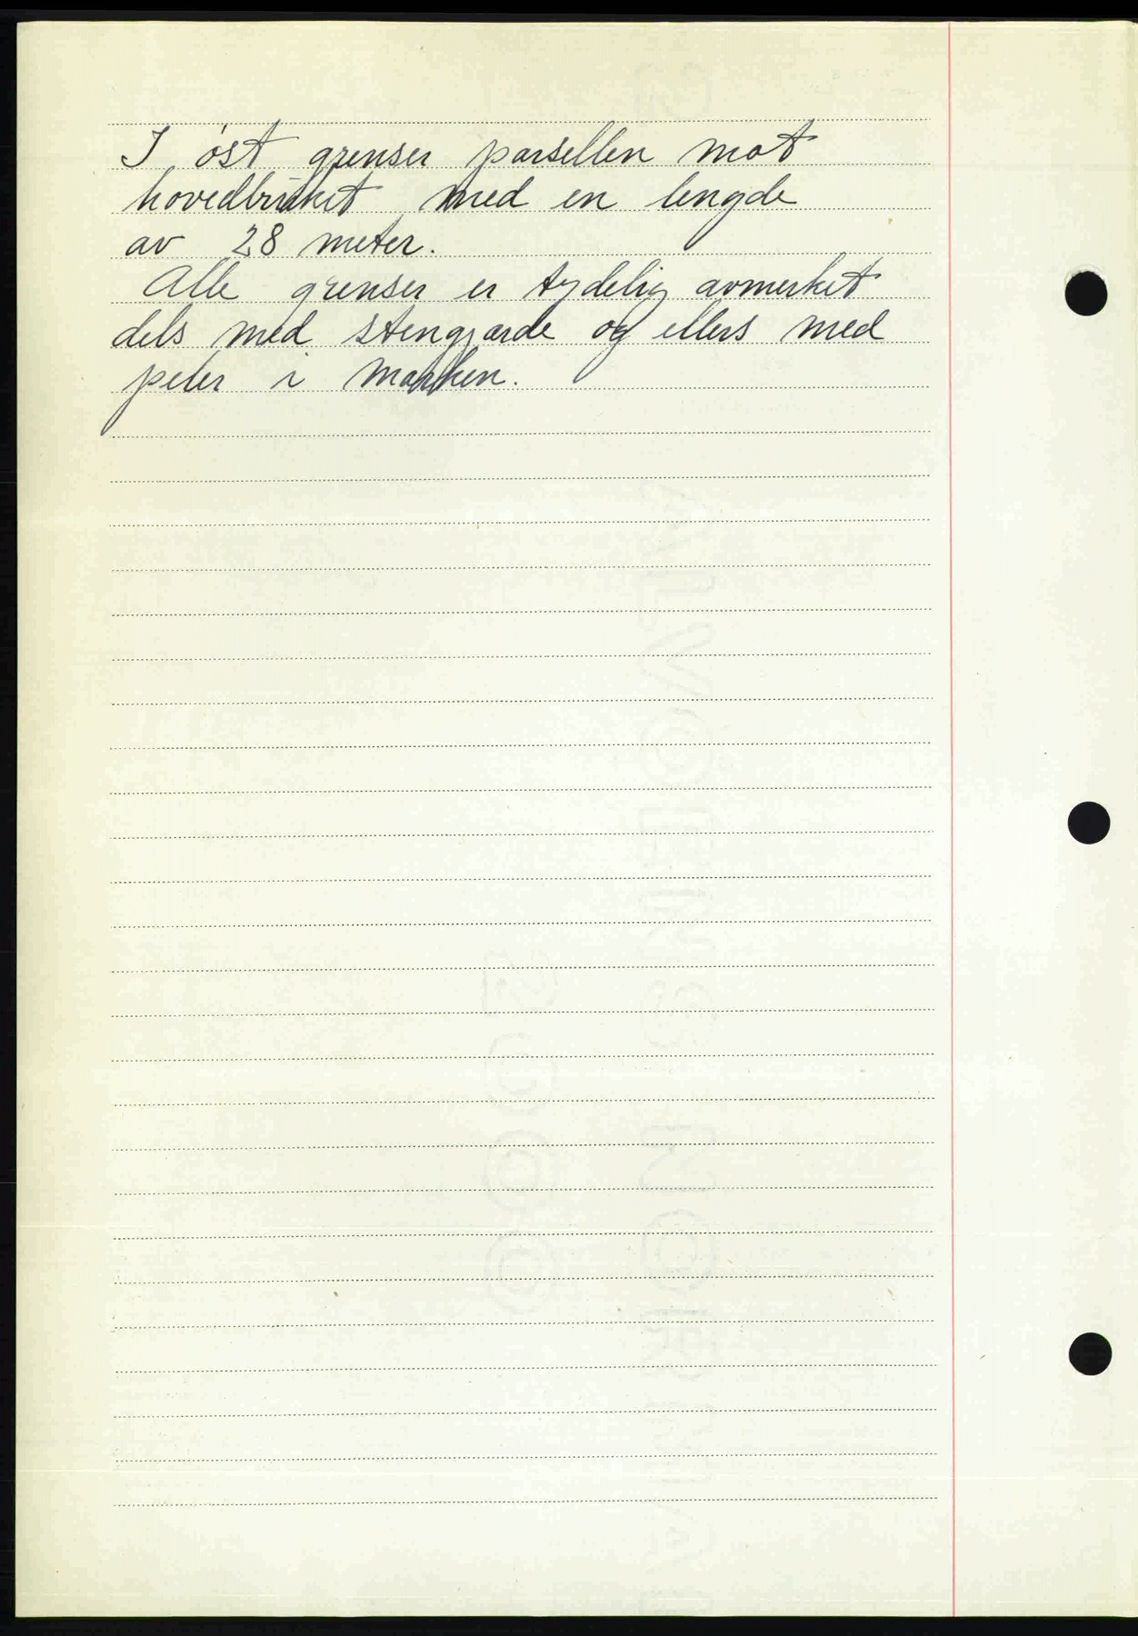 I øst grenser parsellen mot
hovedbruket med en lengde
av 28 meter.
Alle grenser er tydelig avmerket
dels med stengjærde og ellers med
peler i marken.